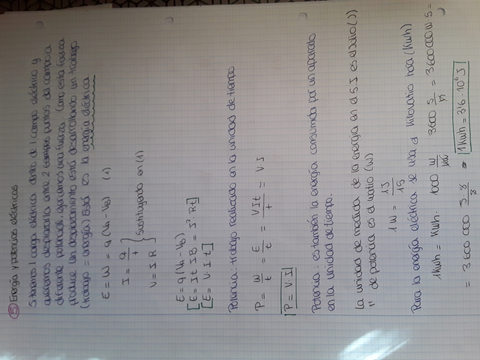 Energía y potencia eléctricas
Si tenemos 1 carga eléctrica dentro de 1 campo eléctrico y
queremos desplazarla entre 2 puntos del campo a
diferente potencial aplicamos una fuerza. Como esta fuerza
produce un desplazamiento está desarrollando un trabajo
(trabajo = energía) Esta es la energía eléctrica
E = W = q (Va - Vb) (1)
I = q/t
V = I R } Sustituyendo en (1)
E = q (Va - Vb)
[E = I t I R = I² R t]
[E = V I t]
Potencia: trabajo realizado en la unidad de tiempo
P = W/t = E/t = V I t/t = V I
P = V · I
Potencia: es también la energía consumida por un aparato
en la unidad de tiempo.
La unidad de medida de la energía en el S.I. es el Julio (J)
" de potencia es el watio (W)
1 W = 1J/1S
Para la energía eléctrica se usa el kilowatio hora (kwh)
1 Kwh = 1 kwh · 1000 w/kw · 3600 s/h = 3600 000 w s =
= 3 600 000 J/s · s = 1 Kwh = 3'6 · 10⁶ J